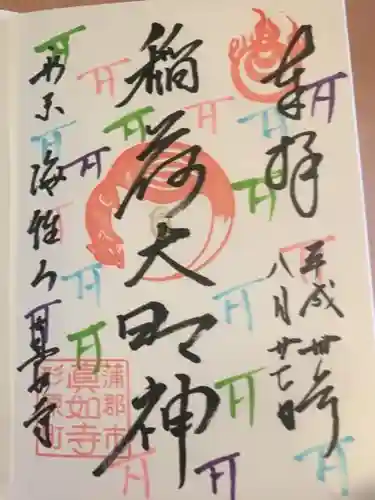 奉拝
平成卅年
八月廿七日
稲荷大明神
形原
海性山
真如寺
蒲郡市
眞如寺
形原町